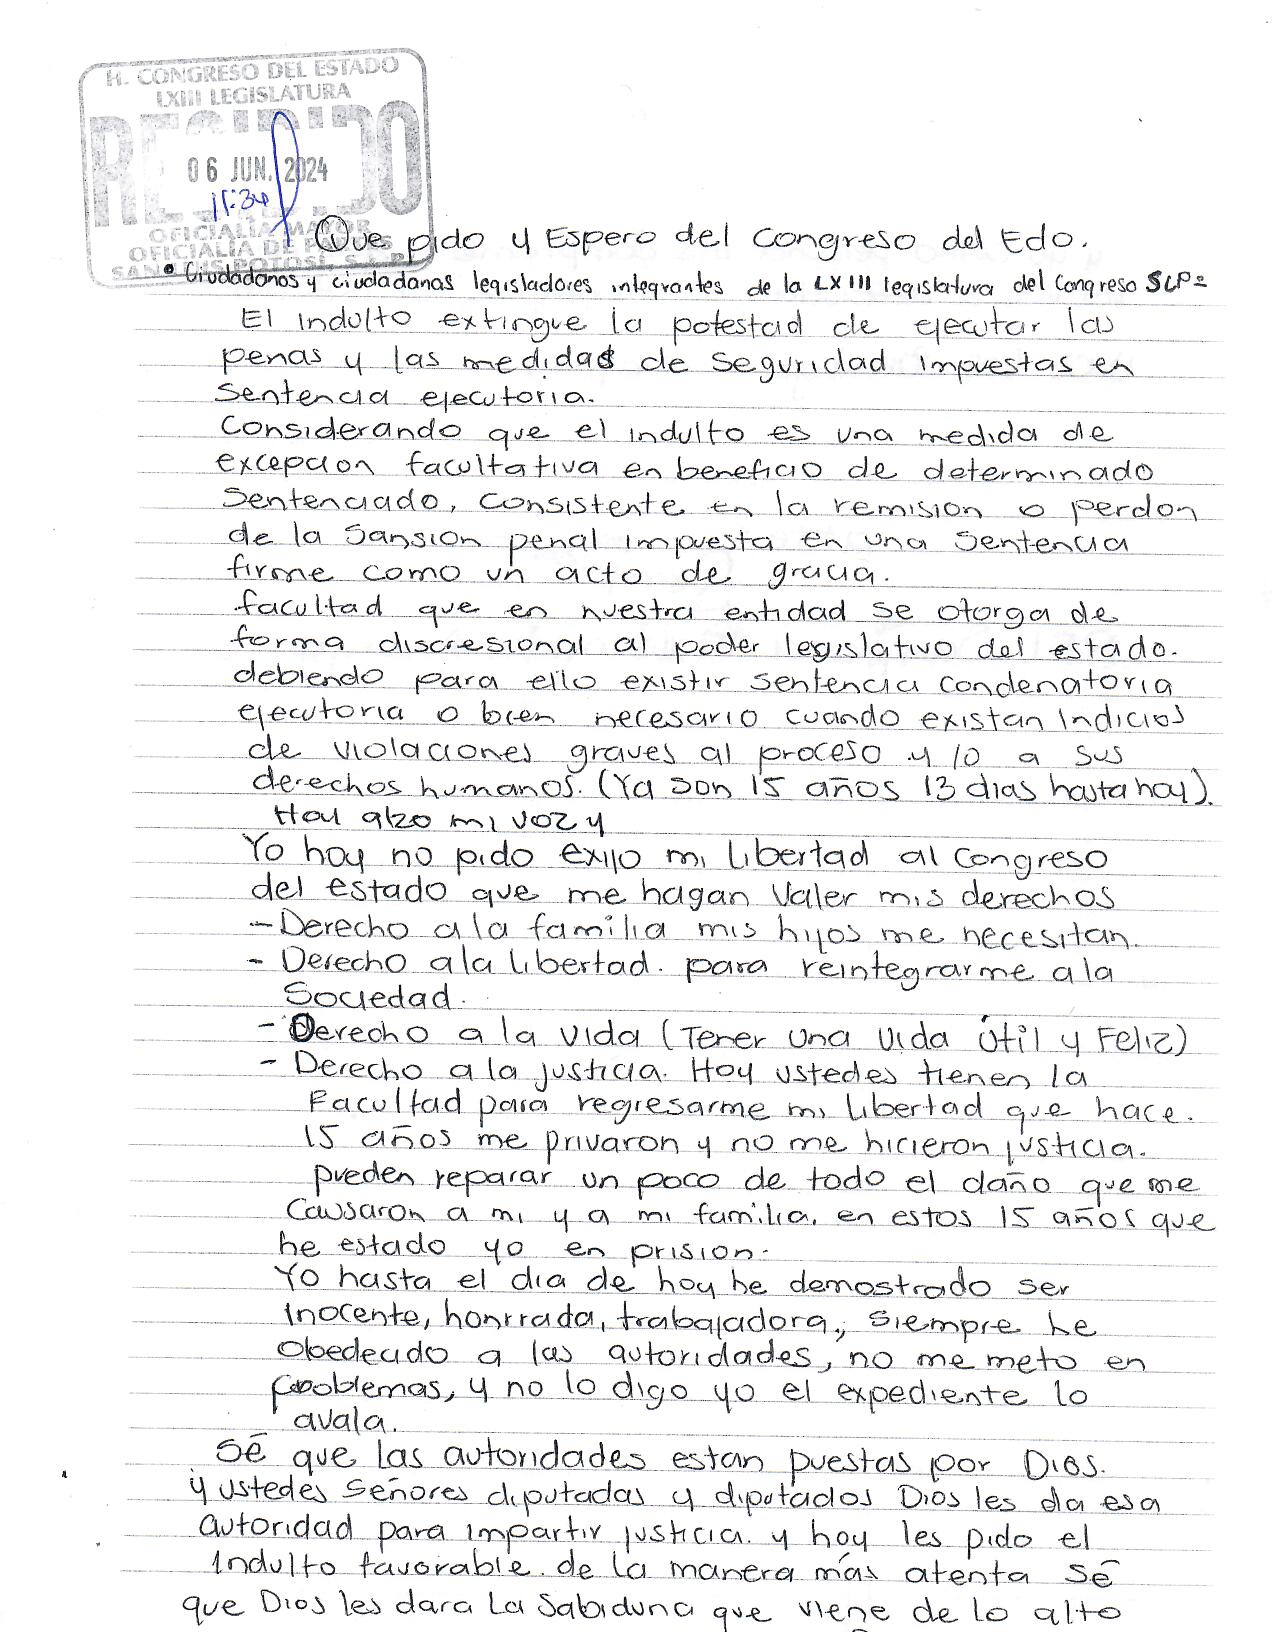 H. CONGRESO DEL ESTADO
LXIII LEGISLATURA
RECIBIDO
06 JUN. 2024
11:34
OFICIALIA MAYOR
OFICIALIA DE PARTES
SAN LUIS POTOSI, S.L.P.
Que pido y Espero del Congreso del Edo.
• Ciudadanos y ciudadanas legisladores integrantes de la LXIII legislatura del Congreso SLP=
El indulto extingue la potestad de ejecutar las
penas y las medidas de seguridad impuestas en
sentencia ejecutoria.
Considerando que el indulto es una medida de
excepcion facultativa en beneficio de determinado
sentenciado, consistente en la remision o perdon
de la sansion penal impuesta en una sentencia
firme como un acto de gracia.
facultad que en nuestra entidad se otorga de
forma discresional al poder legislativo del estado.
debiendo para ello existir sentencia condenatoria
ejecutoria o bien necesario cuando existan indicios
de violaciones graves al proceso y/o a sus
derechos humanos. (Ya son 15 años 13 dias hasta hoy).
Hoy alzo mi voz y
Yo hoy no pido exijo mi libertad al congreso
del estado que me hagan valer mis derechos
- Derecho a la familia mis hijos me necesitan.
- Derecho a la libertad. para reintegrarme a la
Sociedad.
- Derecho a la vida (Tener una vida útil y Feliz)
- Derecho a la justicia. Hoy ustedes tienen la
Facultad para regresarme mi libertad que hace.
15 años me privaron y no me hicieron justicia.
pueden reparar un poco de todo el daño que me
causaron a mi y a mi familia. en estos 15 años que
he estado yo en prision.
Yo hasta el dia de hoy he demostrado ser
inocente, honrrada, trabajadora, siempre he
obedecido a las autoridades, no me meto en
problemas, y no lo digo yo el expediente lo
avala.
Sé que las autoridades estan puestas por Dios.
y ustedes señores diputadas y diputados Dios les da esa
autoridad para impartir justicia. y hoy les pido el
indulto favorable. de la manera más atenta sé
que Dios les dara la sabiduria que viene de lo alto